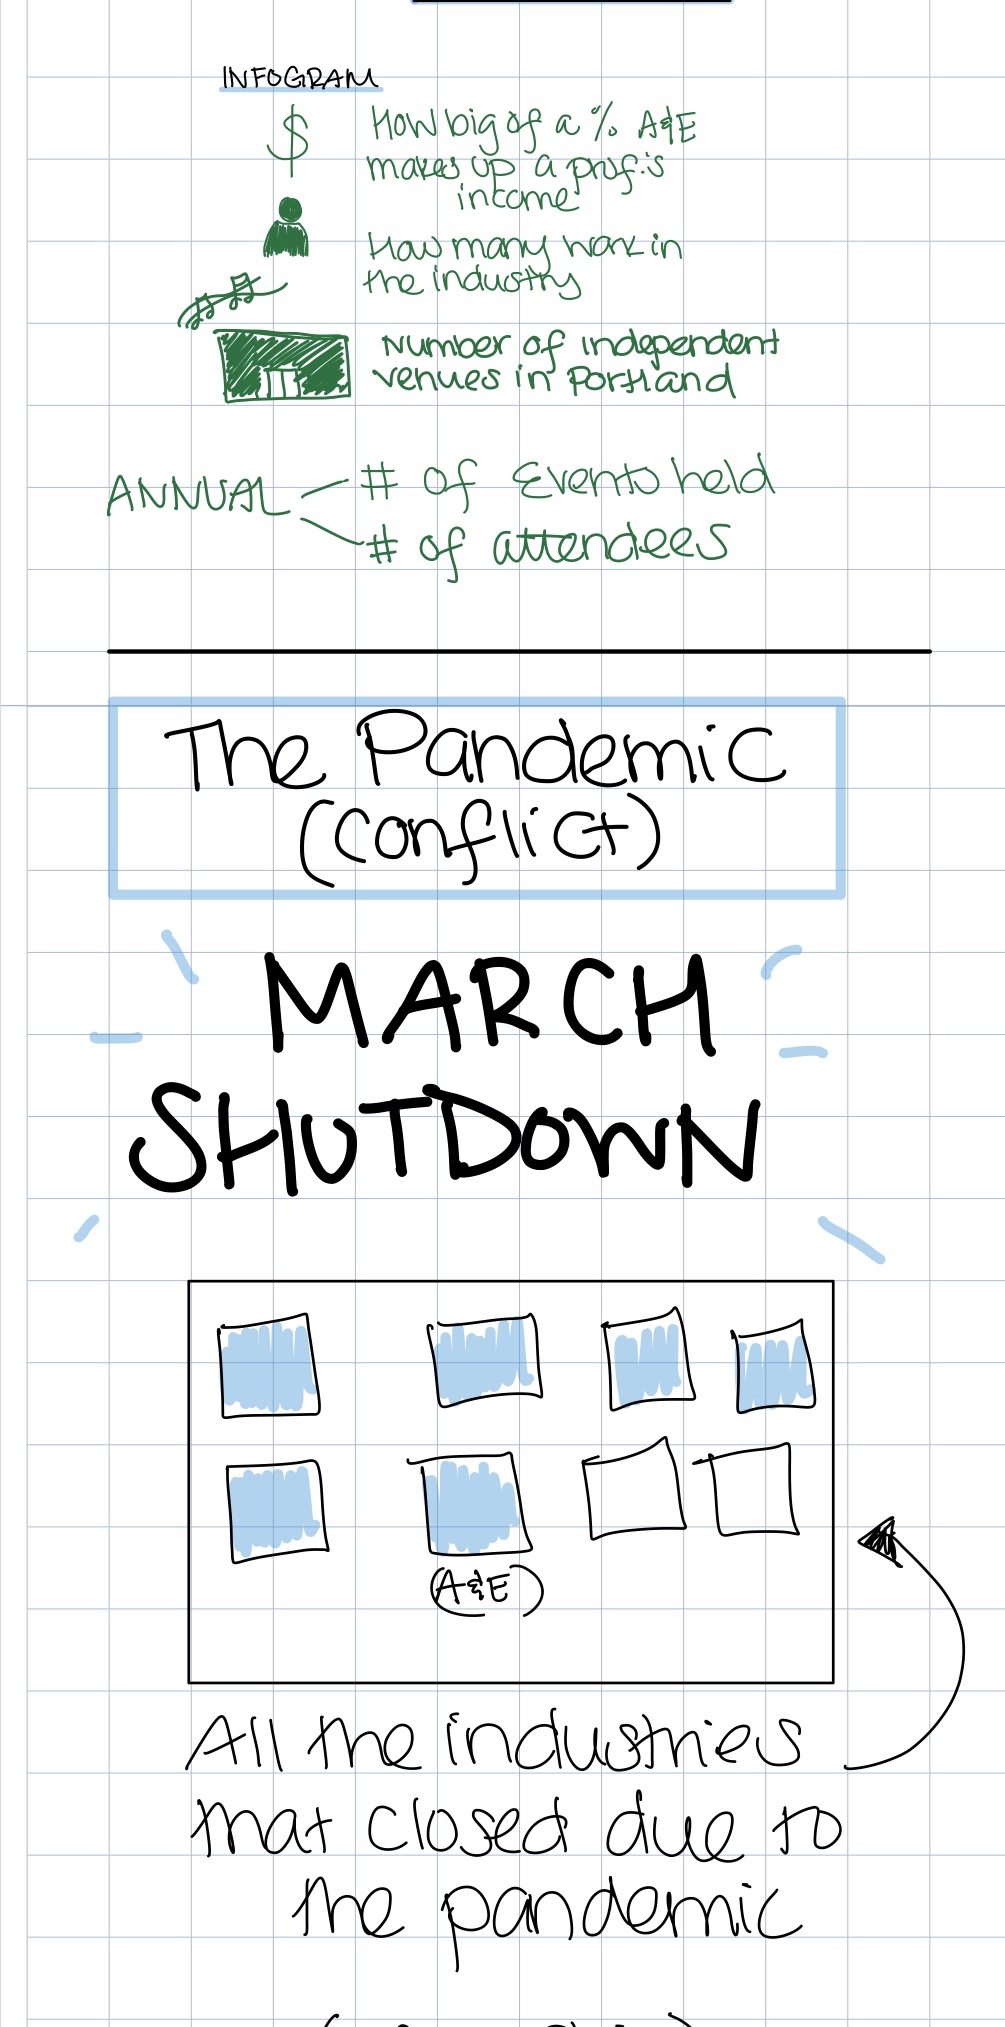 INFOGRAM
$
How big of a % A&E
makes up a prof.'s
income
How many work in
the industry
Number of independent
venues in Portland
ANNUAL
# of Events held
# of attendees
The Pandemic
(Conflict)
MARCH
SHUTDOWN
(A&E)
All the industries
that closed due to
the pandemic